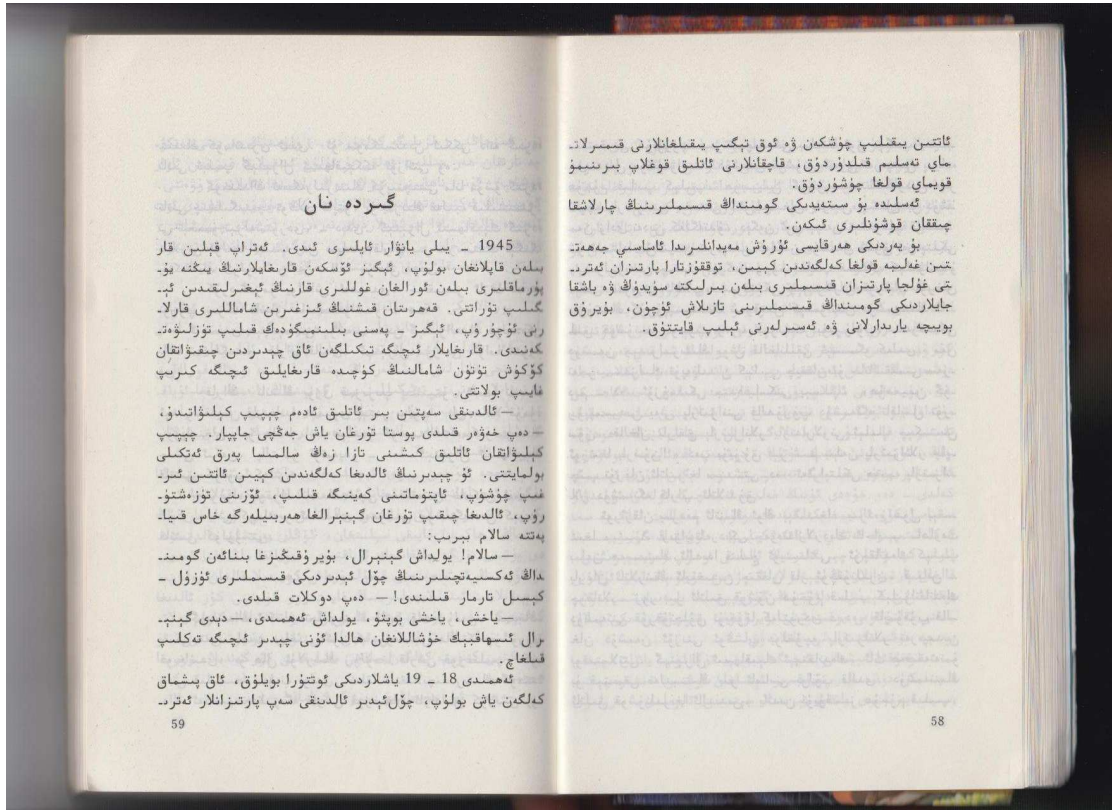 ئاتتىن يىقىلىپ چۈشكەن ۋە ئوق تېگىپ يىقىلغانلارنى قىمىرلات-
ماي تەسلىم قىلدۇردۇق، قاچقانلارنى ئاتلىق قوغلاپ بىرىنىمۇ
قويماي قولغا چۈشۈردۇق.
ئەسلىدە بۇ سىتەيدىكى گومىنداڭ قىسىملىرىنىڭ چارلاشقا
چىققان قوشۇنلىرى ئىكەن.
بۇ يەردىكى ھەرقايسى ئۇرۇش مەيدانلىرىدا ئاساسىي جەھەت-
تىن غەلىبە قولغا كەلگەندىن كېيىن، توققۇزتارا پارتىزان ئەترى-
تى غۇلجا پارتىزان قىسىملىرى بىلەن بىرلىكتە سۈيدۈڭ ۋە باشقا
جايلاردىكى گومىنداڭ قىسىملىرىنى تازىلاش ئۈچۈن، بۇيرۇق
بويىچە يارىدارلانى ۋە ئەسىرلەرنى ئېلىپ قايتتۇق.
58
گىردە نان
1945 - يىلى يانۋار ئايلىرى ئىدى. ئەتراپ قېلىن قار
بىلەن قاپلانغان بولۇپ، ئېگىز ئۆسكەن قارىغايلارنىڭ يىڭنە يۇ-
پۇرماقلىرى بىلەن ئورالغان غوللىرى قارنىڭ ئېغىرلىقىدىن ئې-
گىلىپ تۇراتتى. قەھرىتان قىشنىڭ ئىزغىرىن شاماللىرى قارلا-
رنى ئۇچۇرۇپ، ئېگىز - پەسنى بىلىنمىگۈدەك قىلىپ تۈزلىۋەت-
كەنىدى. قارىغايلار ئىچىگە تىكىلگەن ئاق چېدىردىن چىقىۋاتقان
كۆكۈش تۈتۈن شامالنىڭ كۈچىدە قارىغايلىق ئىچىگە كىرىپ
غايىب بولاتتى.
— ئالدىنقى سەپتىن بىر ئاتلىق ئادەم چېپىپ كېلىۋاتىدۇ،
— دەپ خەۋەر قىلدى پوستا تۇرغان ياش جەڭچى جاپپار. چېپىپ
كېلىۋاتقان ئاتلىق كىشىنى تازا زەڭ سالمىسا پەرق ئەتكىلى
بولمايتتى. ئۇ چېدىرنىڭ ئالدىغا كەلگەندىن كېيىن ئاتتىن ئىر-
غىپ چۈشۈپ، ئاپتوماتىنى كەينىگە قىلىپ، ئۆزىنى تۈزەشتۈ-
رۈپ، ئالدىغا چىقىپ تۇرغان گېنېرالغا ھەربىيلەرگە خاس قىيا-
پەتتە سالام بېرىپ:
— سالام! يولداش گېنېرال، بۇيرۇقىڭىزغا بىنائەن گومىن-
داڭ ئەكسىيەتچىلىرىنىڭ چۆل ئېدىردىكى قىسىملىرى ئۈزۈل -
كېسىل تارمار قىلىندى! — دەپ دوكلات قىلدى.
— ياخشى، ياخشى بوپتۇ، يولداش ئەھمىدى، — دېدى گېنې-
رال ئىسھاقبېك خۇشاللانغان ھالدا ئۇنى چېدىر ئىچىگە تەكلىپ
قىلغاچ.
ئەھمىدى 18 - 19 ياشلاردىكى ئوتتۇرا بويلۇق، ئاق پىشماق
كەلگەن ياش بولۇپ، چۆل ئېدىر ئالدىنقى سەپ پارتىزانلار ئەترى-
59